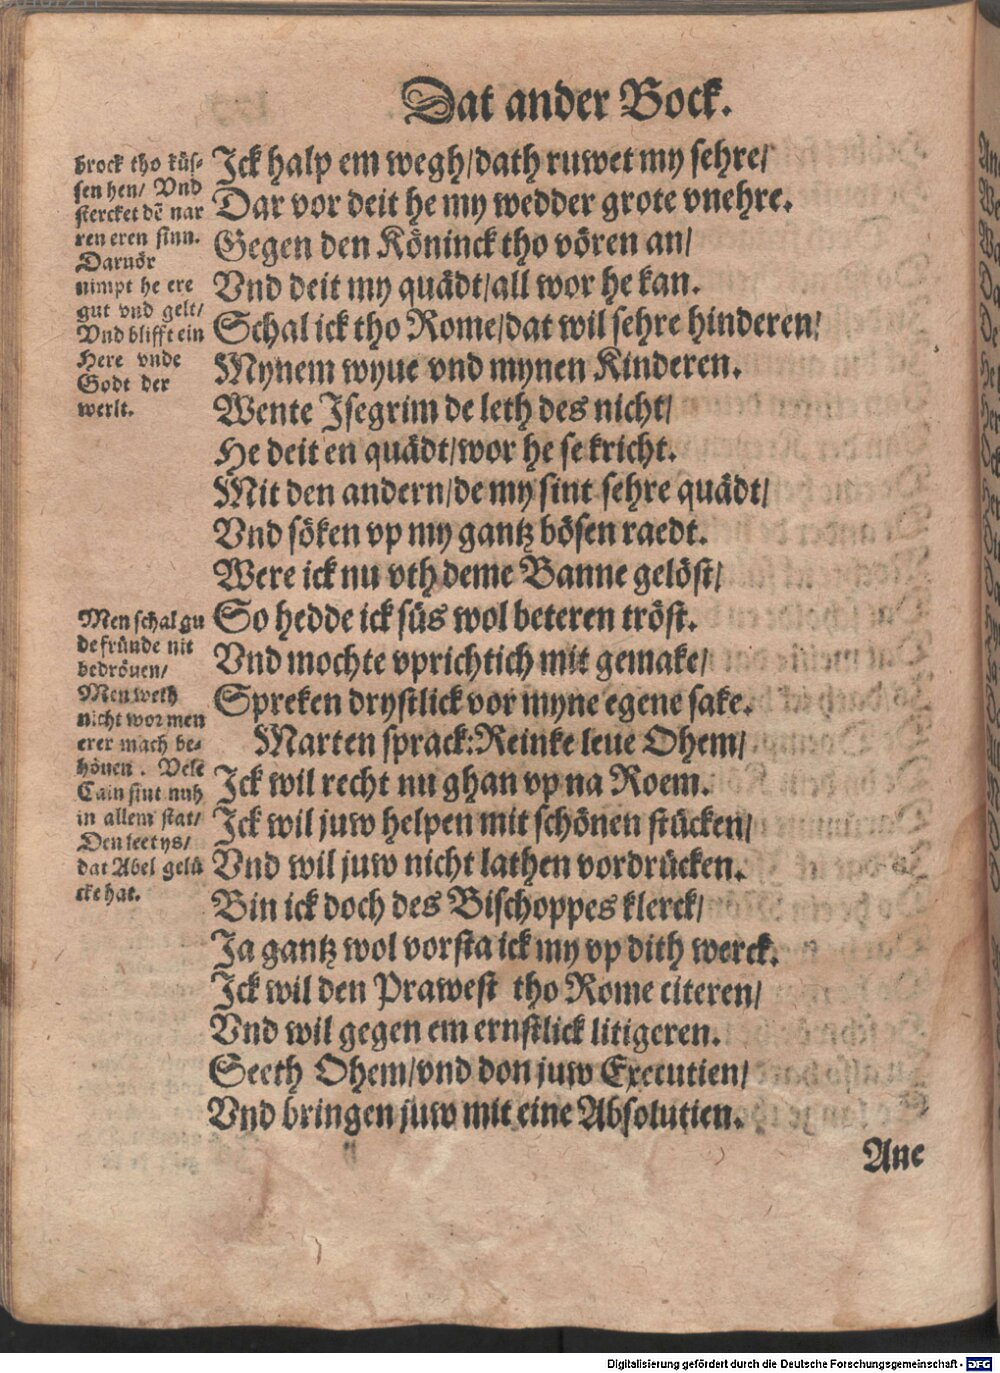 Dat ander Bock.
brock tho küs-
sen hen/ Vnd
stercket dē nar
ren eren sinn.
Daruör
nimpt he ere
gut vnd gelt/
Vnd blifft ein
Here vnde
Godt der
werlt.
Men schal gu
de fründe nit
bedröuen/
Men weth
nicht wor men
erer mach be-
höuen. Vele
Cain sint nuh
in allem stat/
Den leet ys/
dat Abel gelü
cke hat.
Ick halp em wegh/dath ruwet my sehre/
Dar vor deit he my wedder grote vnehre.
Gegen den Köninck tho vören an/
Vnd deit my quädt/all wor he kan.
Schal ick tho Rome/dat wil sehre hinderen/
Mynem wyue vnd mynen Kinderen.
Wente Isegrim de leth des nicht/
He deit en quädt/wor he se kricht.
Mit den andern/de my sint sehre quädt/
Vnd söken vp my gantz bösen raedt.
Were ick nu vth deme Banne gelöst/
So hedde ick süs wol beteren tröst.
Vnd mochte vprichtich mit gemake/
Spreken drystlick vor myne egene sake.
Marten sprack:Reinke leue Ohem/
Ick wil recht nu ghan vp na Roem.
Ick wil juw helpen mit schönen stücken/
Vnd wil juw nicht lathen vordrücken.
Bin ick doch des Bischoppes klerck/
Ja gantz wol vorsta ick my vp dith werck.
Ick wil den Prawest tho Rome citeren/
Vnd wil gegen em ernstlick litigeren.
Seeth Ohem/vnd don juw Executien/
Vnd bringen juw mit eine Absolutien.
Ane
Digitalisierung gefördert durch die Deutsche Forschungsgemeinschaft - DFG